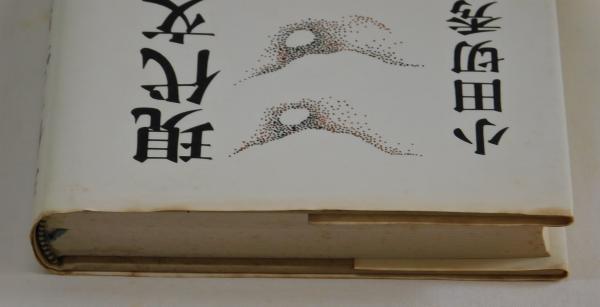 現代文
小田切秀